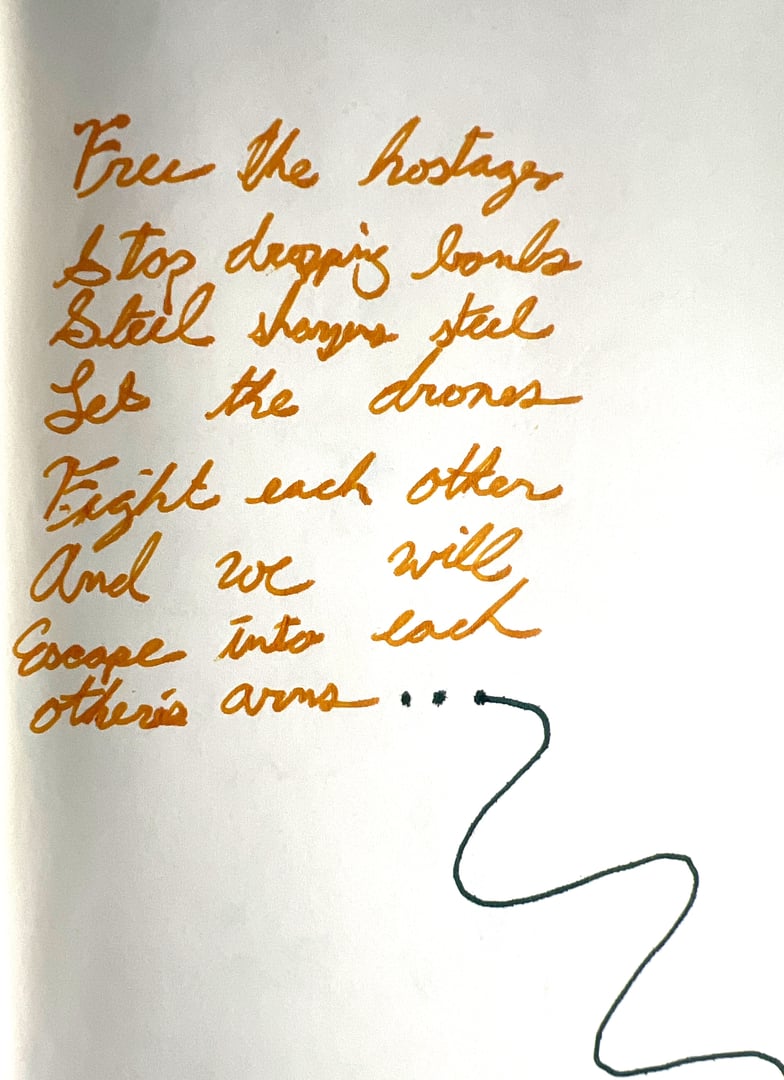 Free the hostages
Stop dropping bombs
Steel sharpens steel
Let the drones
Fight each other
And we will
Escape into each
other's arms...